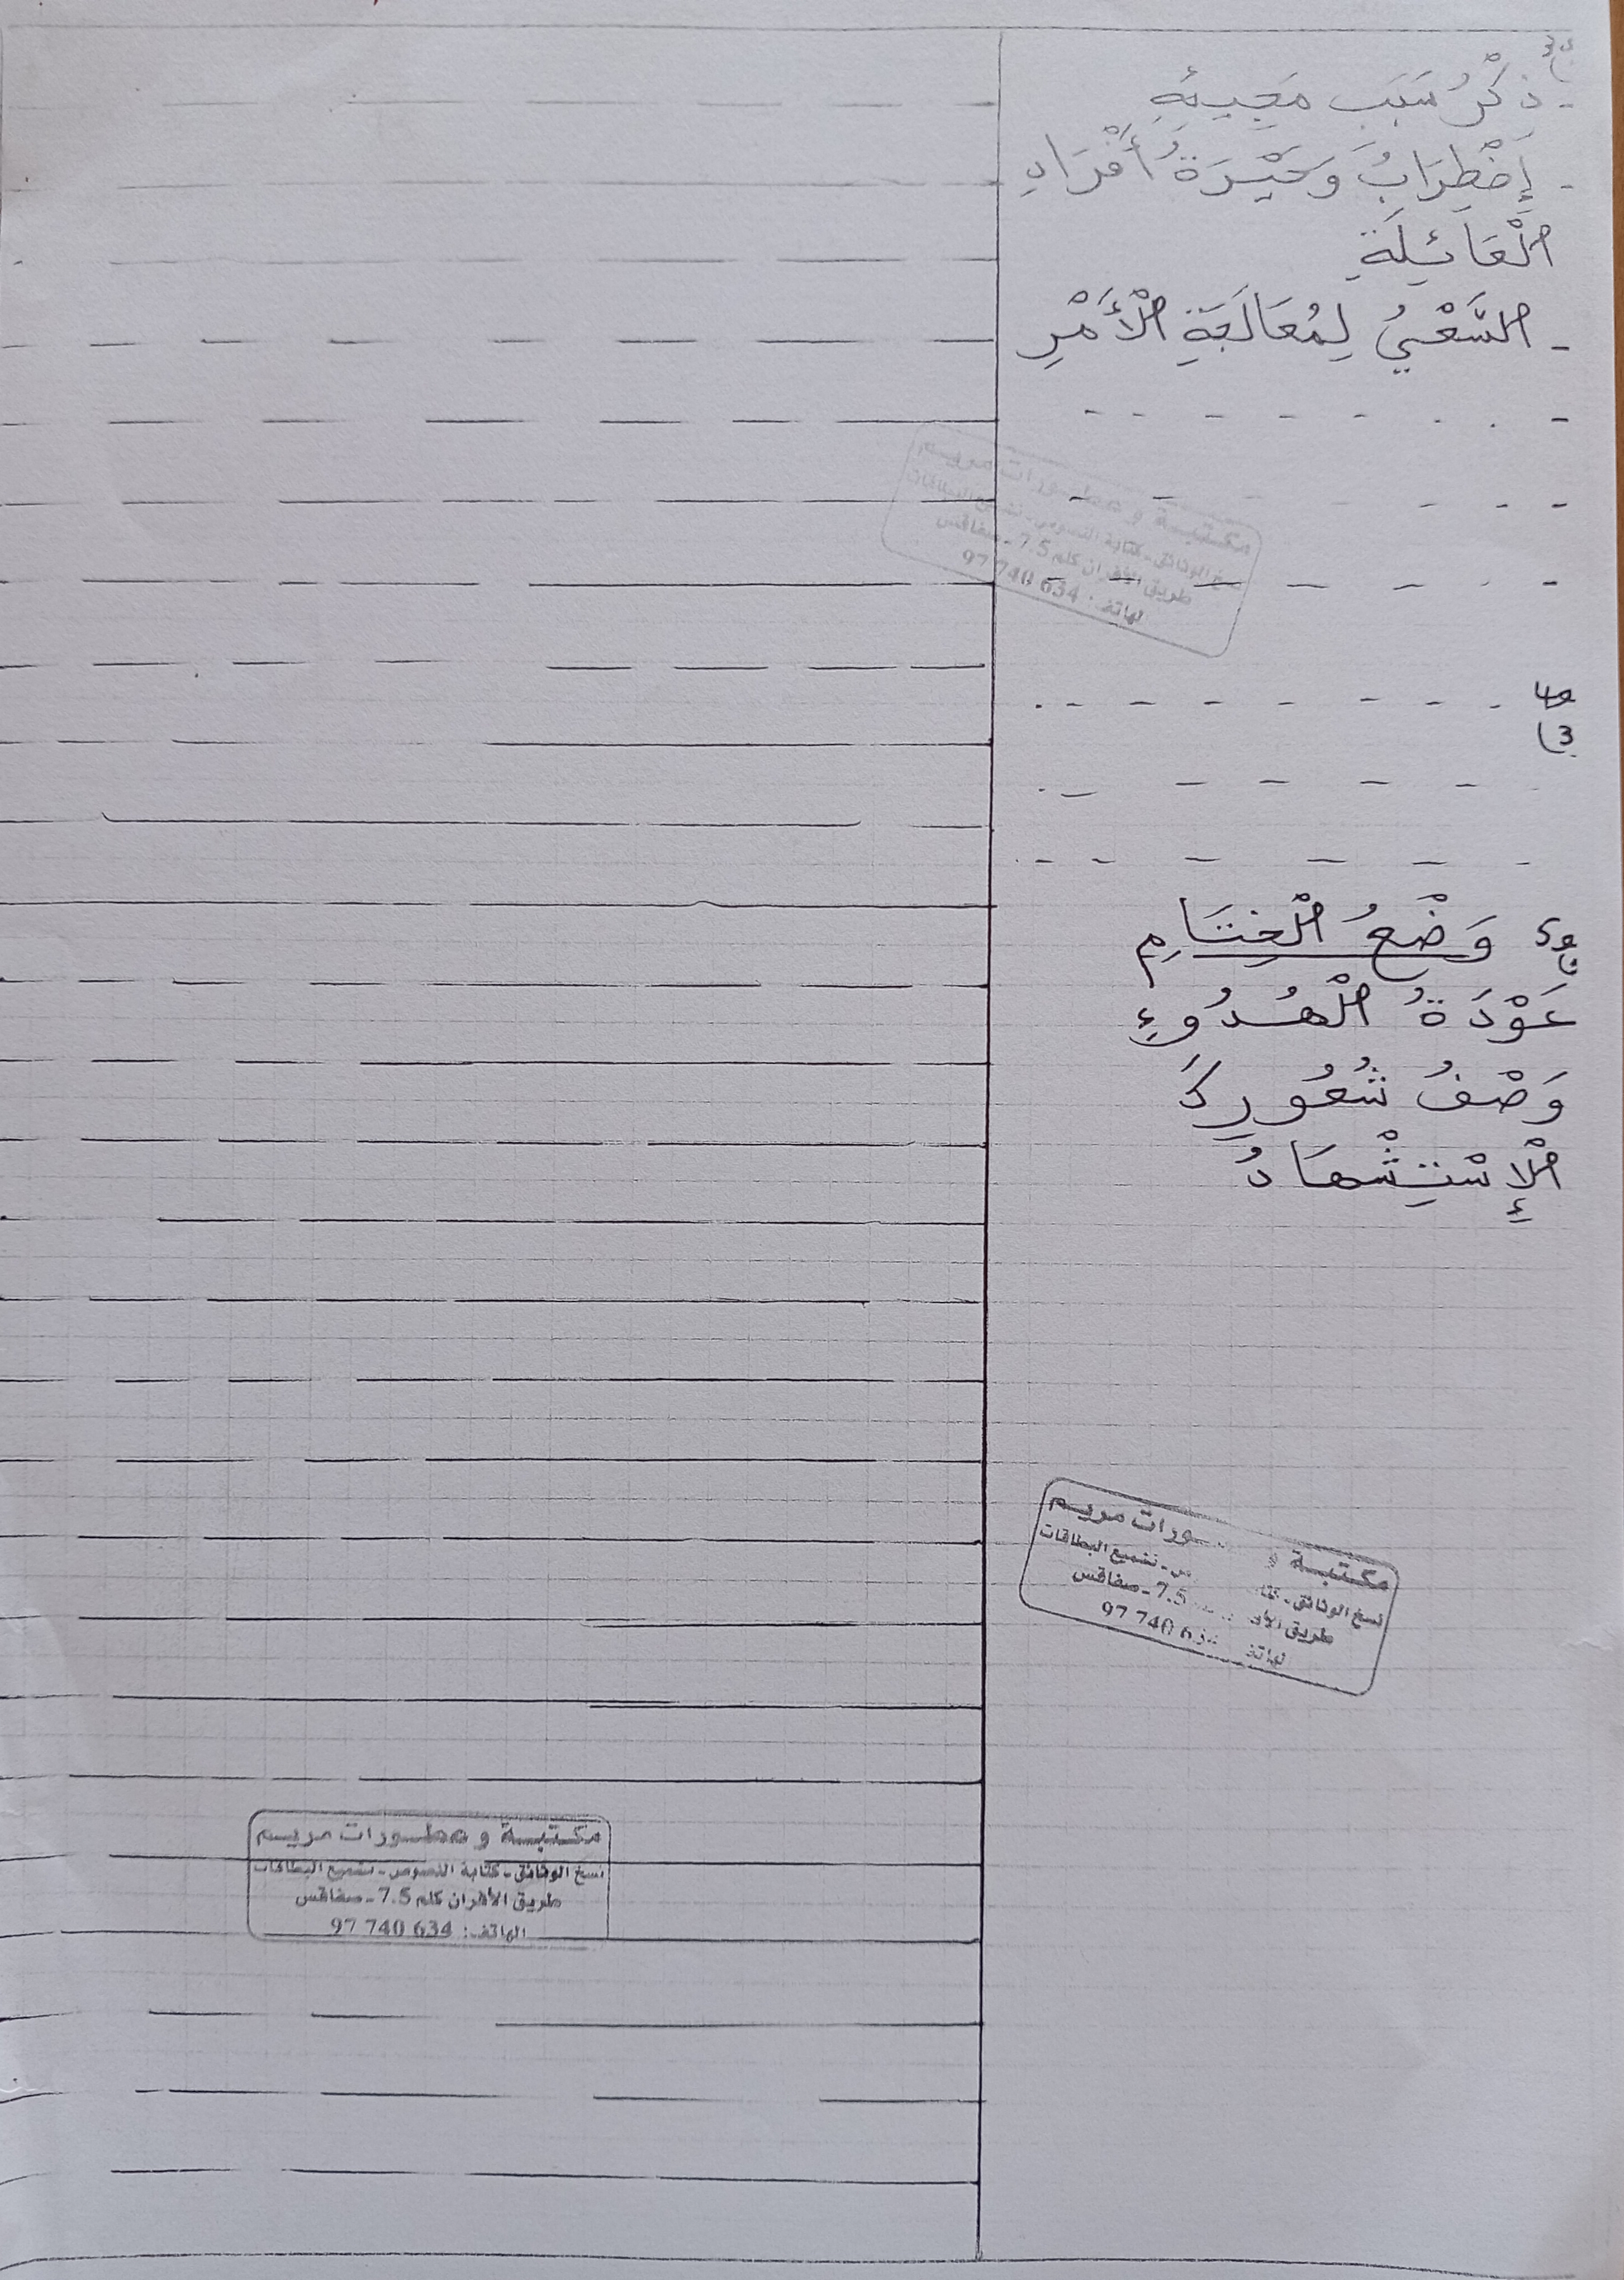 - ذِكْرُ سَبَبِ مَجِيئِهِ
- إِضْطِرَابُ وَحَيْرَةُ أَفْرَادِ
الْعَائِلَةِ
- السَّعْيُ لِمُعَالَجَةِ الْأَمْرِ
مكتبة و عطورات مريم
نسخ الوثائق - كتابة النصوص - تشميع البطاقات
طريق الأفران كلم 7.5 - صفاقس
الهاتف: 97 740 634
وَضْعُ الْخِتَامِ
عَوْدَةُ الْهُدُوءِ
وَصْفُ شُعُورِكَ
الْإِسْتِشْهَادُ
مكتبة و ـورات مريم
نسخ الوثائق - تشميع البطاقات
طريق 7.5 - صفاقس
97 740 634
مكتبة و عطورات مريم
نسخ الوثائق - كتابة النصوص - تشميع البطاقات
طريق الأفران كلم 7.5 - صفاقس
الهاتف: 97 740 634